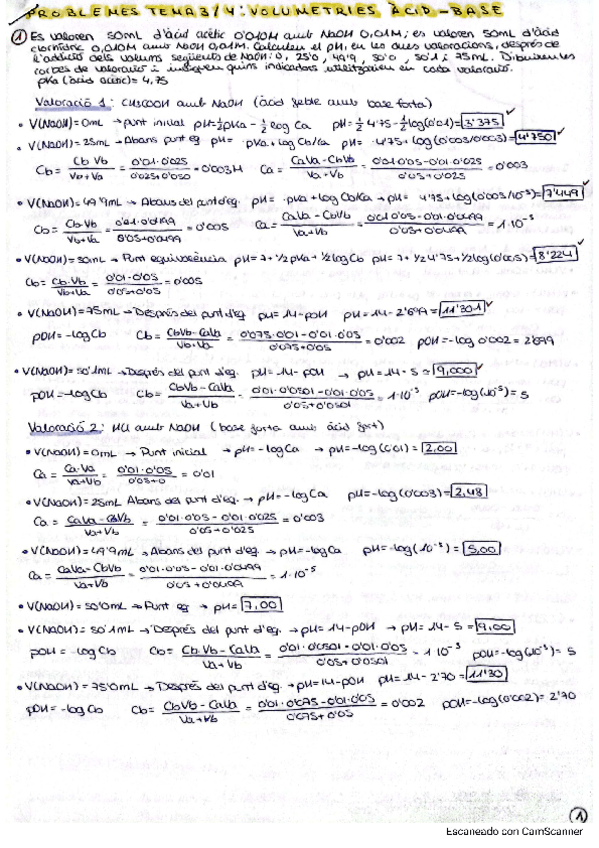 PROBLEMES TEMA 3/4: VOLUMETRIES ÀCID-BASE
① Es valoren 50mL d'àcid acètic 0'010M amb NaOH 0,01M; es valoren 50mL d'àcid
clorhídric 0,010M amb NaOH 0,01M. Calculeu el pH, en les dues valoracions, després de
l'addició dels volums següents de NaOH: 0, 25'0, 49'9, 50'0, 50'1 i 75mL. Dibuixeu les
corbes de valoració i indiqueu quins indicadors utilitzaríeu en cada valoració.
pKa (àcid acètic) = 4,75
Valoració 1: CH3COOH amb NaOH (àcid feble amb base forta)
• V(NaOH)=0mL → punt inicial pH=½pKa - ½log Ca pH=½4'75-½log(0'01)=3'375 ✓
• V(NaOH)=25mL → Abans punt eq pH= pKa + log Cb/Ca pH= 4'75+log(0'003/0'003)=4'750 ✓
Cb= Cb·Vb / Vb+Va = 0'01·0'025 / 0'025+0'050 = 0'003M Ca= CaVa-CbVb / Va+Vb = 0'01·0'05-0'01·0'025 / 0'05+0'025 = 0'003
• V(NaOH)=49'9mL → Abans del punt d'eq. pH= pKa+log Cb/Ca → pH= 4'75+log(0'005/10⁻⁵)=7'449 ✓
Cb= Cb·Vb / Vb+Va = 0'01·0'0499 / 0'05+0'0499 = 0'005 Ca= CaVa-CbVb / Va+Vb = 0'01·0'05-0'01·0'0499 / 0'05+0'0499 = 1·10⁻⁵
• V(NaOH)=50mL → Punt equivalència pH=7+½pKa+½log Cb pH=7+½4'75+½log(0'005)=8'224 ✓
Cb= Cb·Vb / Vb+Va = 0'01·0'05 / 0'05+0'05 = 0'005
• V(NaOH)=75mL → Després del punt d'eq. pH=14-pOH pH=14-2'699=11'301 ✓
pOH=-log Cb Cb= CbVb-CaVa / Va+Vb = 0'075·0'01-0'01·0'05 / 0'075+0'05 = 0'002 pOH=-log 0'002=2'699
• V(NaOH)=50'1mL → Després del punt d'eq. pH=14-pOH → pH=14-5=9,000 ✓
pOH=-log Cb Cb= CbVb-CaVa / Va+Vb = 0'01·0'0501-0'01·0'05 / 0'05+0'0501 = 1·10⁻⁵ pOH=-log(10⁻⁵)=5
Valoració 2: HCl amb NaOH (base forta amb àcid fort)
• V(NaOH)=0mL → Punt inicial → pH=-log Ca → pH=-log(0'01)=2,00
Ca= Ca·Va / Va+Vb = 0'01·0'05 / 0'05+0 = 0'01
• V(NaOH)=25mL Abans del punt d'eq. → pH=-log Ca pH=-log(0'003)=2,48
Ca= CaVa-CbVb / Va+Vb = 0'01·0'05-0'01·0'025 / 0'05+0'025 = 0'003
• V(NaOH)=49'9mL → Abans del punt d'eq. → pH=-log Ca pH=-log(10⁻⁵)=5,00
Ca= CaVa-CbVb / Va+Vb = 0'01·0'05-0'01·0'0499 / 0'05+0'0499 = 1·10⁻⁵
• V(NaOH)=50'0mL → Punt eq → pH=7,00
• V(NaOH)=50'1mL → Després del punt d'eq. → pH=14-pOH → pH=14-5=9,00
pOH=-log Cb Cb= Cb·Vb-CaVa / Va+Vb = 0'01·0'0501-0'01·0'05 / 0'05+0'0501 = 1·10⁻⁵ pOH=-log(10⁻⁵)=5
• V(NaOH)=75'0mL → Després del punt d'eq. → pH=14-pOH pH=14-2'70=11'30
pOH=-log Cb Cb= CbVb-CaVa / Va+Vb = 0'01·0'075-0'01·0'05 / 0'075+0'05 = 0'002 pOH=-log(0'002)=2'70
①
Escaneado con CamScanner